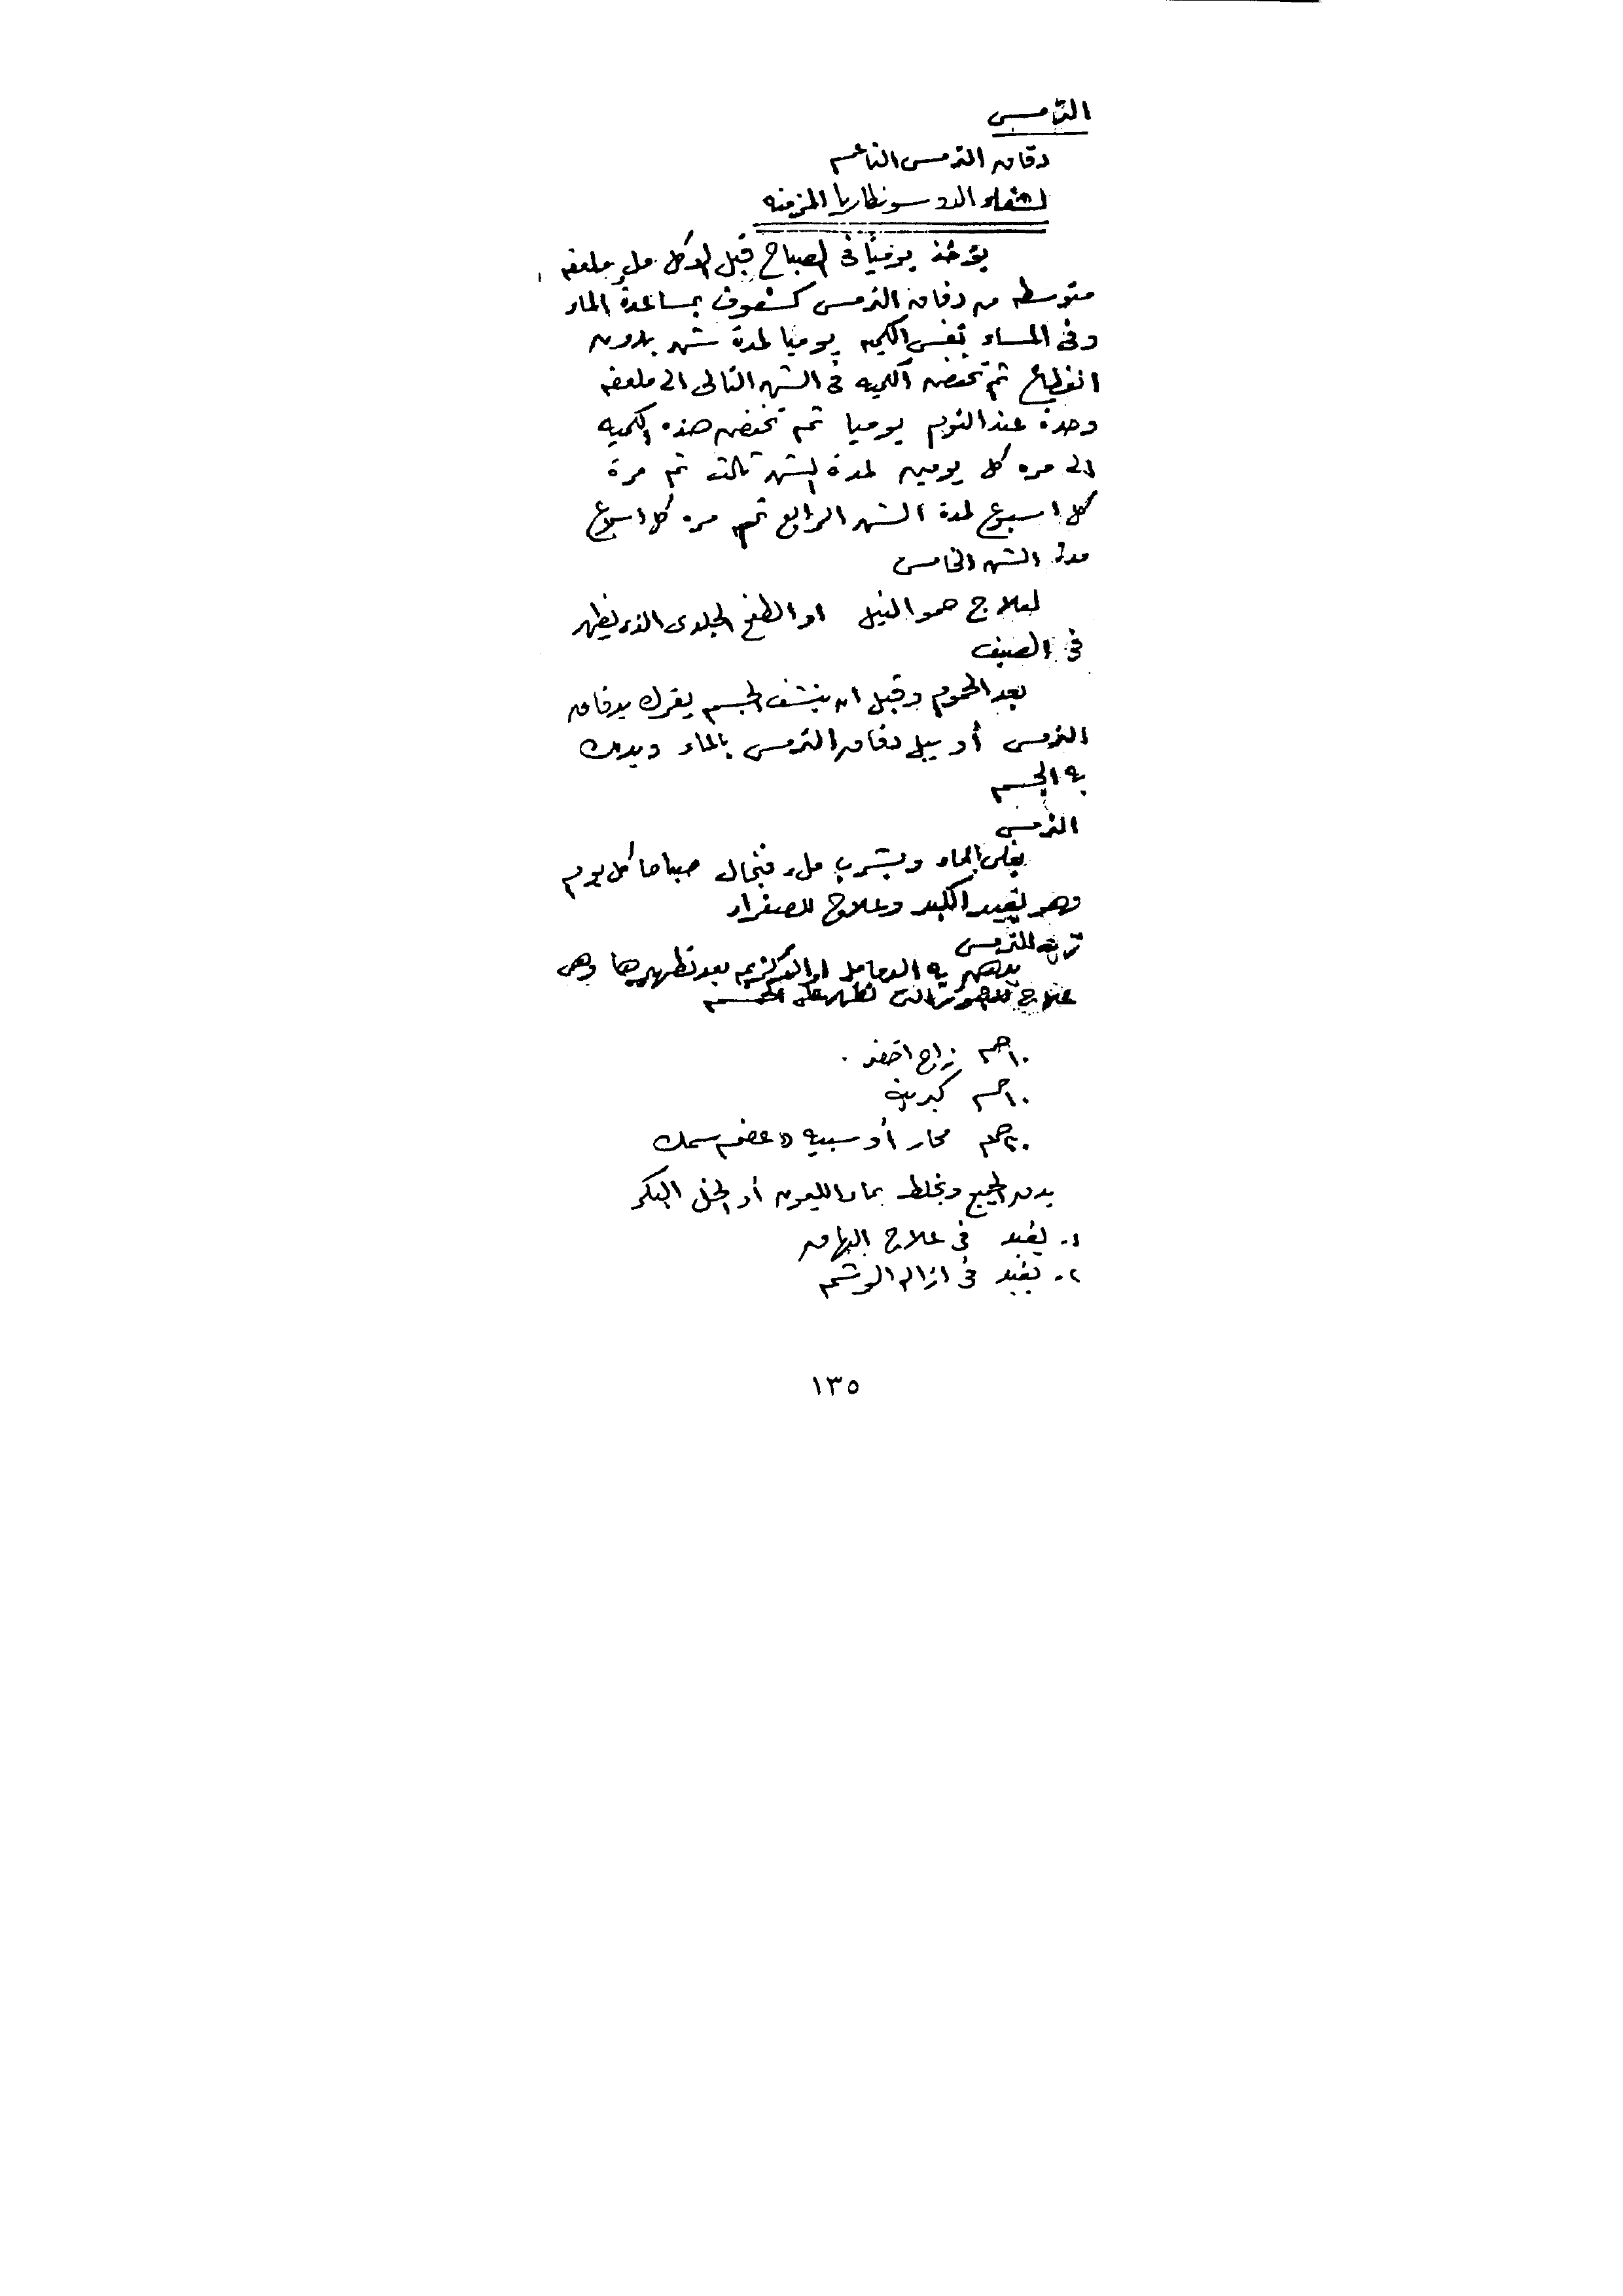 الترمس
دقاق الترمس الناعم
لشفاء الدوسونطاريا المزمنه
يؤخذ يوميًا فى الصباح قبل الاكل ملء ملعقه
متوسطه من دقاق الترمس كسفوف بمساعدة الماء
وفى المساء بنفس الكميه يوميا لمدة شهر بدون
انقطاع ثم تخفض الكميه فى الشهر التالى الى ملعقه
وحدة عند النوم يوميا ثم تخفض هذه الكميه
الى مره كل يومين لمدة الشهر ثالث ثم مرة
كل اسبوع لمدة الشهر الرابع ثم مره كل اسبوع
مدة الشهر الخامس
لعلاج حمو النيل او الطفح الجلدى الذى يظهر
فى الصيف
بعد الحموم وقبل ان ينشف الجسم يفرك بدقاق
الترمس أو يبل دقاق الترمس بالماء ويدلك
به الجسم
الترمس
يغلى بالماء ويشرب ملء فنجال صباحا كل يوم
وهو يفيد الكبد وعلاج للصفراء
الترمس
يدهن به الدمامل او بعد تطهيرها وهى
علاج التى تظهر على الجسم
١٠جم زاج اخضر
١٠جم كبريت
٢٠جم محار أو سبيه « عضم سمك
يدق الجميع ويخلط بماء الليمون أو الخل البكر
١- يفيد فى علاج البهاق
٢- يفيد فى ازاله الوشم
١٣٥